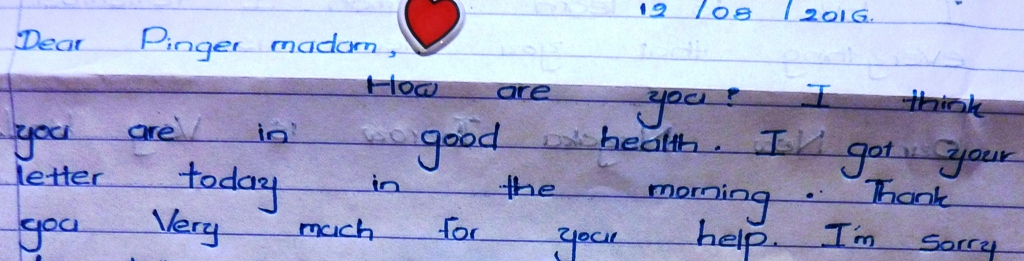 12 / 08 / 2016.
Dear Pinger madam,
How are you? I think
you are in good health. I got your
letter today in the morning. Thank
you Very much for your help. I'm sorry